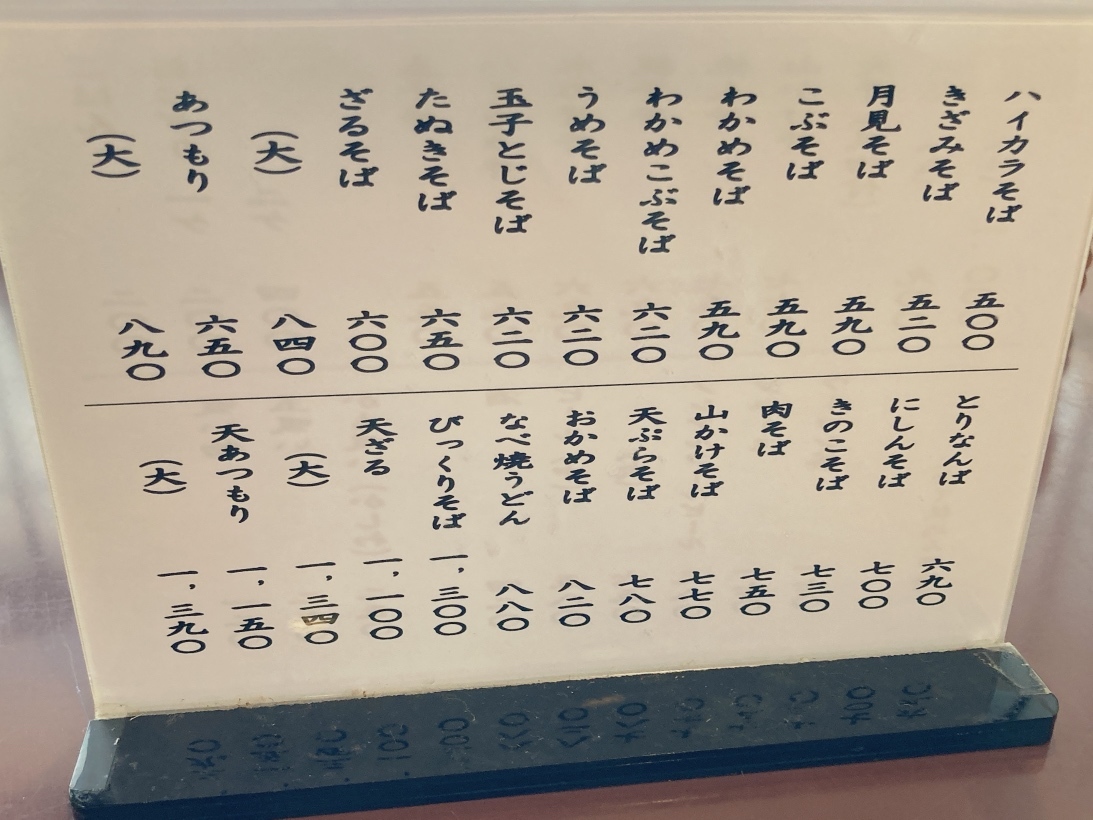 ハイカラそば 五〇〇
きざみそば 五二〇
月見そば 五九〇
こぶそば 五九〇
わかめそば 五九〇
わかめこぶそば 六二〇
うめそば 六二〇
玉子とじそば 六二〇
たぬきそば 六五〇
ざるそば 六〇〇
（大） 八四〇
あつもり 六五〇
（大） 八九〇
とりなんば 六九〇
にしんそば 七〇〇
きのこそば 七三〇
肉そば 七五〇
山かけそば 七七〇
天ぷらそば 七八〇
おかめそば 八二〇
なべ焼うどん 八八〇
びっくりそば 一,三〇〇
天ざる 一,一〇〇
（大） 一,三四〇
天あつもり 一,一五〇
（大） 一,三九〇